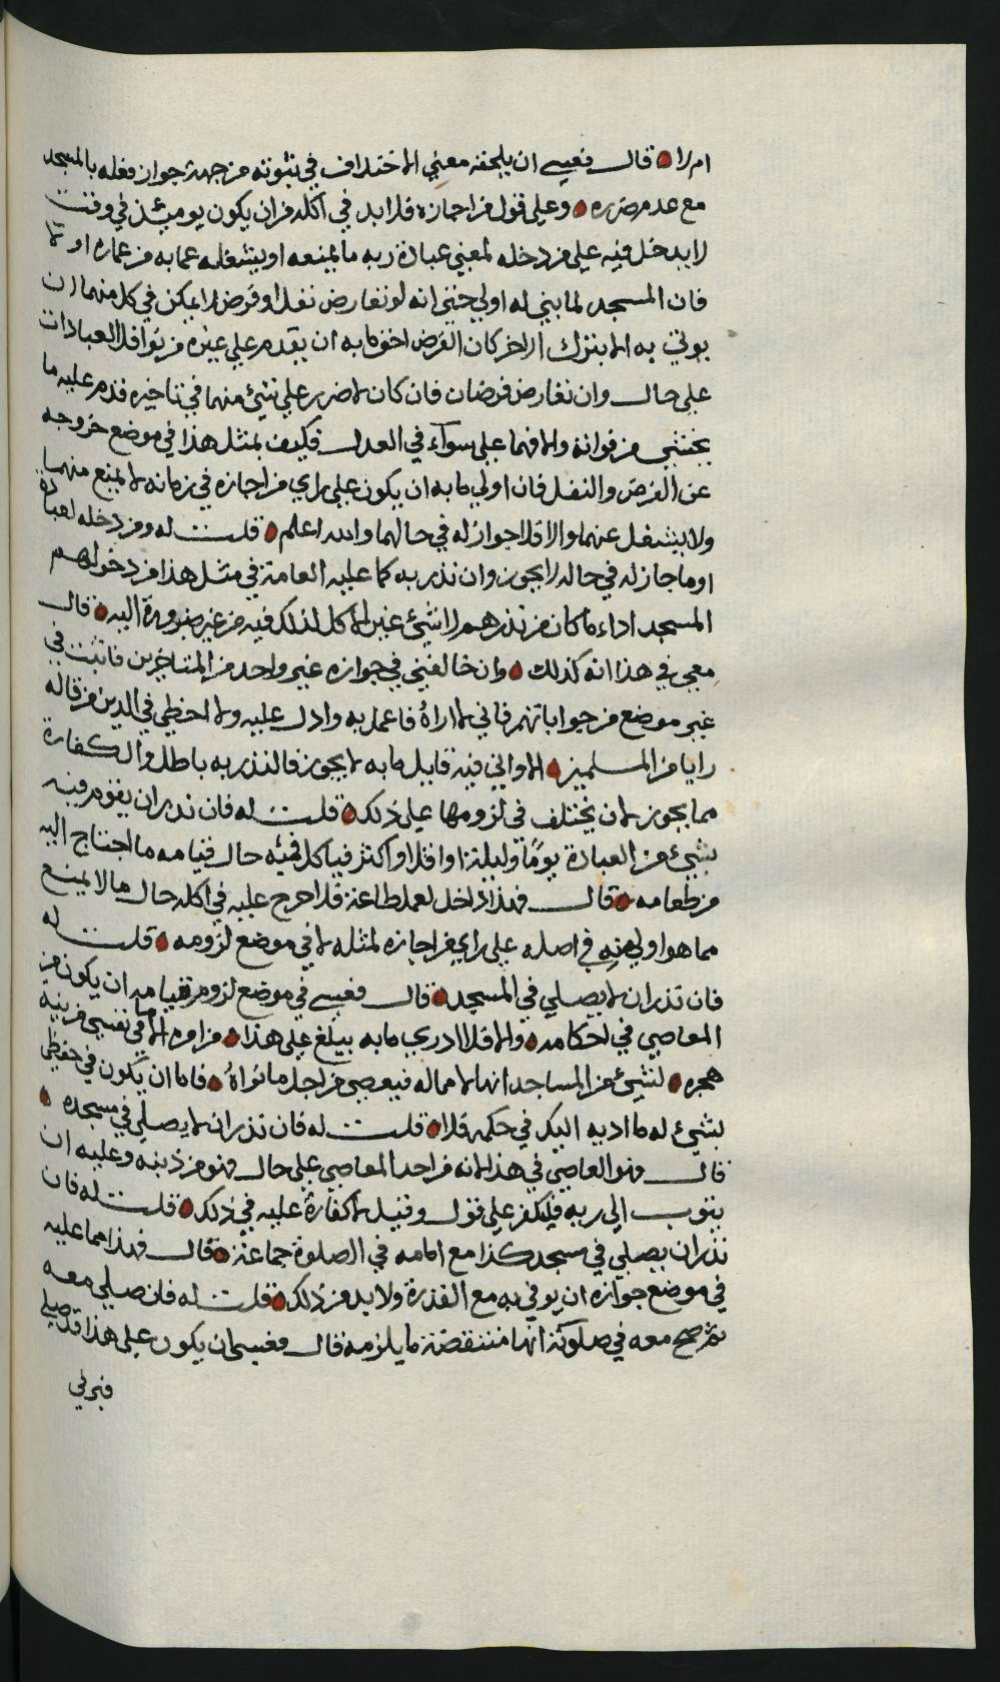 ام لا قال فعسى ان يلحقه معنى الاختلاف في ثبوته من جهة جواز فعله بالمسجد
مع عدم ضرره وعلى قول من اجازه فلا بد في اكله من ان يكون يومئذ في وقت
لا يدخل فيه على من دخله لمعنى عبادة ربه ما يمنعه او يشغله عما به من عماره او
فان المسجد لما بني له اولى حتى انه لو تعارض نفل او فرض لا يمكن في كل منهما ان
يوتى به الا بترك الاخر كان الفرض احق ما به ان يقدم على غيره من نوافل العبادات
على حال وان تعارض فرضان فان كان لا ضرر على شيء منهما في تاخيره قدم عليه ما
يخشى من فواته والا فهما على سواء في العدل فكيف بمثل هذا في موضع خروجه
عن الفرض والنفل فان اولى ما به ان يكون على راي من اجازه في زمانه لا يمنع منهما
ولا يشغل عنهما والا فلا جواز له في حالهما والله اعلم قلت له ومن دخله لعبادة
او ما جاز له في حاله لا يجوز وان نذر به كما عليه العامة في مثل هذا من دخولهم
المسجد اداء ما كان من نذرهم لا شيء غير الاكل لذلك فيه من غير ضرورة اليه قال
معي في هذا انه كذلك وان خالفني في جوازه غير واحد من المتاخرين فاثبت في
غير موضع من جواباتهم فاني لا اراه فاعمل به وادل عليه ولا احظي في الدين من قاله
رايا من المسلمين الا واني فيه قايل ما به لا يجوز فالنذر به باطل والكفارة
مما يجوز لان يختلف في لزومها على ذلك قلت له فان نذر ان يقوم فيه
بشيء من العبادة يوما وليلة او اقل او اكثر فياكل فيه حال قيامه ما احتاج اليه
من طعامه قال فهذا داخل لعمل طاعة فلا حرج عليه في اكله حال ما لا يمنع
مما هو اولى منه في اصله على راي من اجازه لمثله لا في موضع لزومه قلت له
فان نذر ان لا يصلي في المسجد قال فعسى في موضع لزوم قيامه ان يكون من
المعاصي في احكامه والا فلا ادري ما به يبلغ على هذا من امره الا ما في نفسي من نية
هجره لشيء من المساجد انها لا مما له فيعصى من اجل ما نواه فاما ان يكون في حفظي
لشيء له ما اديه اليك في حكمه فلا قلت له فان نذر ان لا يصلي في مسجده
قال فهو العاصي في هذا لانه من احد المعاصي على حال فهو من ذنبه وعليه ان
يتوب الى ربه فليكفر على قول وقيل لا كفارة عليه في ذلك قلت له فان
نذر ان يصلي في مسجد كذا مع امامه في الصلوة جماعة قال فهذا مما عليه
في موضع جوازه ان يوفي به مع القدرة ولا بد من ذلك قلت له فان صلى معه
ثم صح معه في صلوته انها منتقضة ما يلزمه قال فعسى ان يكون على هذا قد صلى
فبرئ